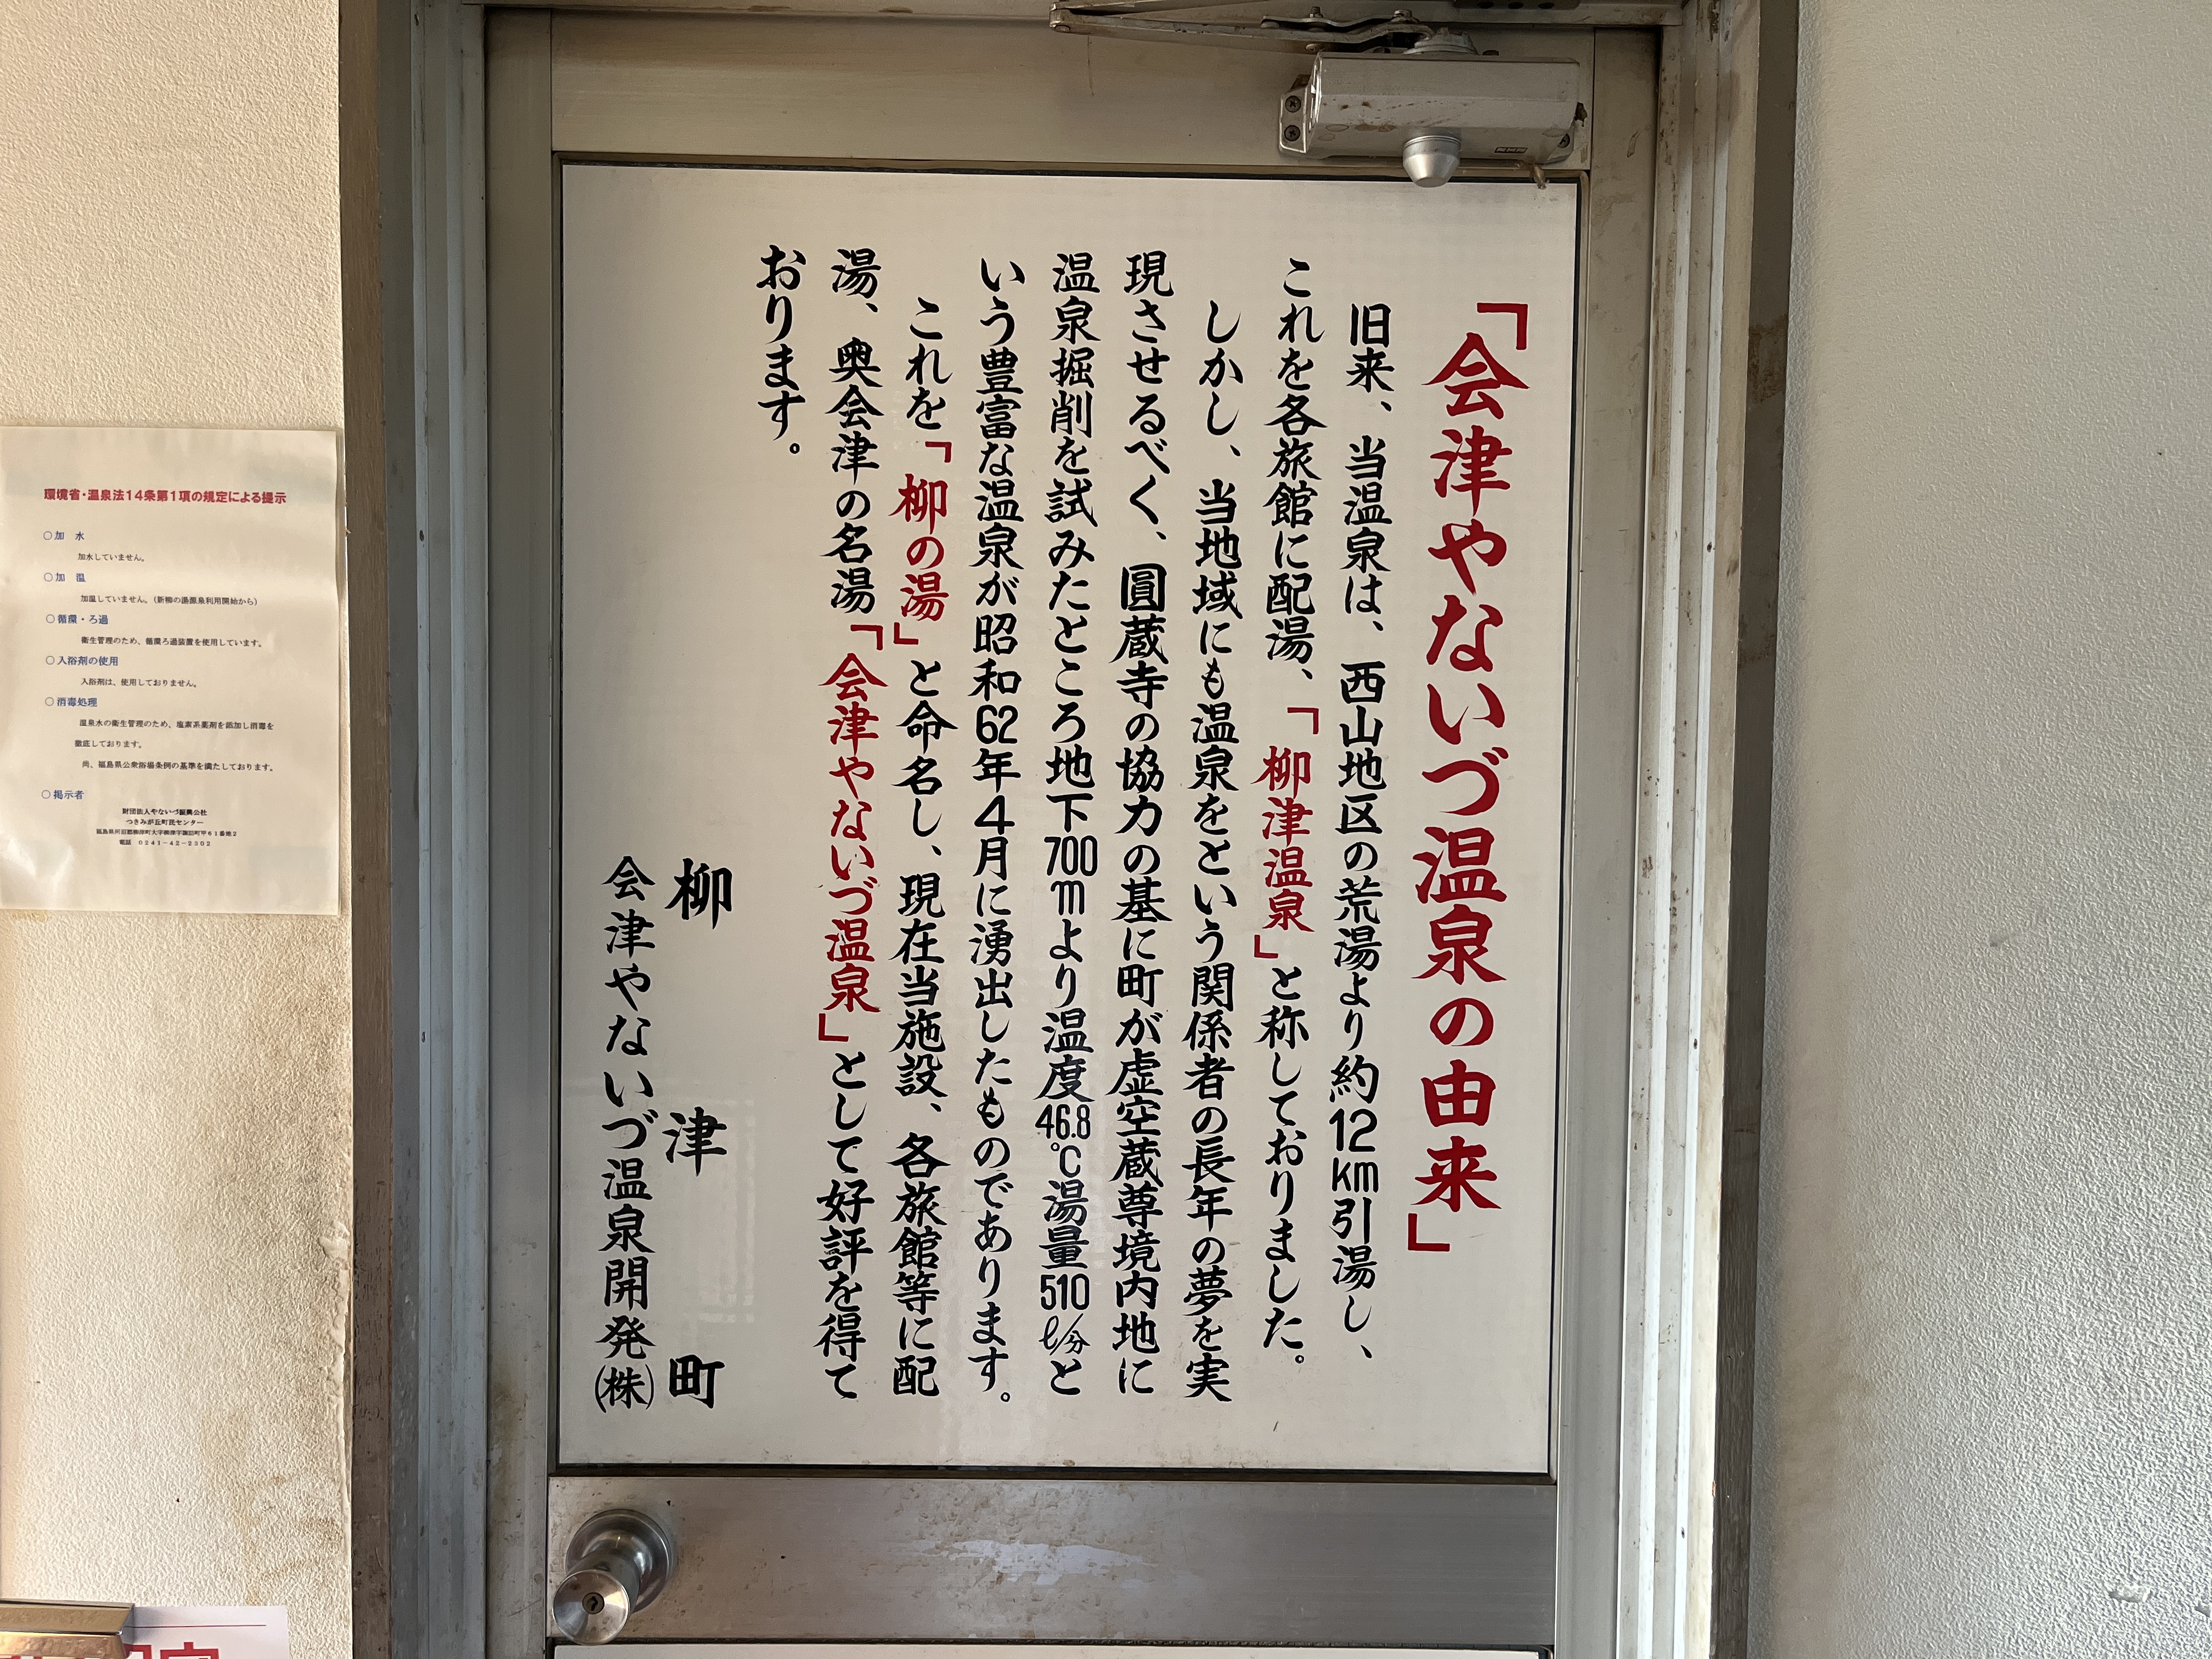 「会津やないづ温泉の由来」
旧来、当温泉は、西山地区の荒湯より約12km引湯し、
これを各旅館に配湯、「柳津温泉」と称しておりました。
しかし、当地域にも温泉をという関係者の長年の夢を実
現させるべく、圓蔵寺の協力の基に町が虚空蔵尊境内地に
温泉掘削を試みたところ地下700mより温度46.8℃湯量510ℓ/分と
いう豊富な温泉が昭和62年4月に湧出したものであります。
これを「柳の湯」と命名し、現在当施設、各旅館等に配
湯、奥会津の名湯「会津やないづ温泉」として好評を得て
おります。
柳津町
会津やないづ温泉開発(株)
環境省・温泉法14条第1項の規定による提示
○加 水
加水していません。
○加 温
加温していません。(新柳の湯源泉利用開始から)
○循環・ろ過
衛生管理のため、循環ろ過装置を使用しています。
○入浴剤の使用
入浴剤は、使用しておりません。
○消毒処理
温泉水の衛生管理のため、塩素系薬剤を添加し消毒を
徹底しております。
尚、福島県公衆浴場条例の基準を満たしております。
○掲示者
財団法人やないづ振興公社
つきみが丘町民センター
福島県河沼郡柳津町大字柳津字諏訪町甲61番地2
電話 0241-42-2302